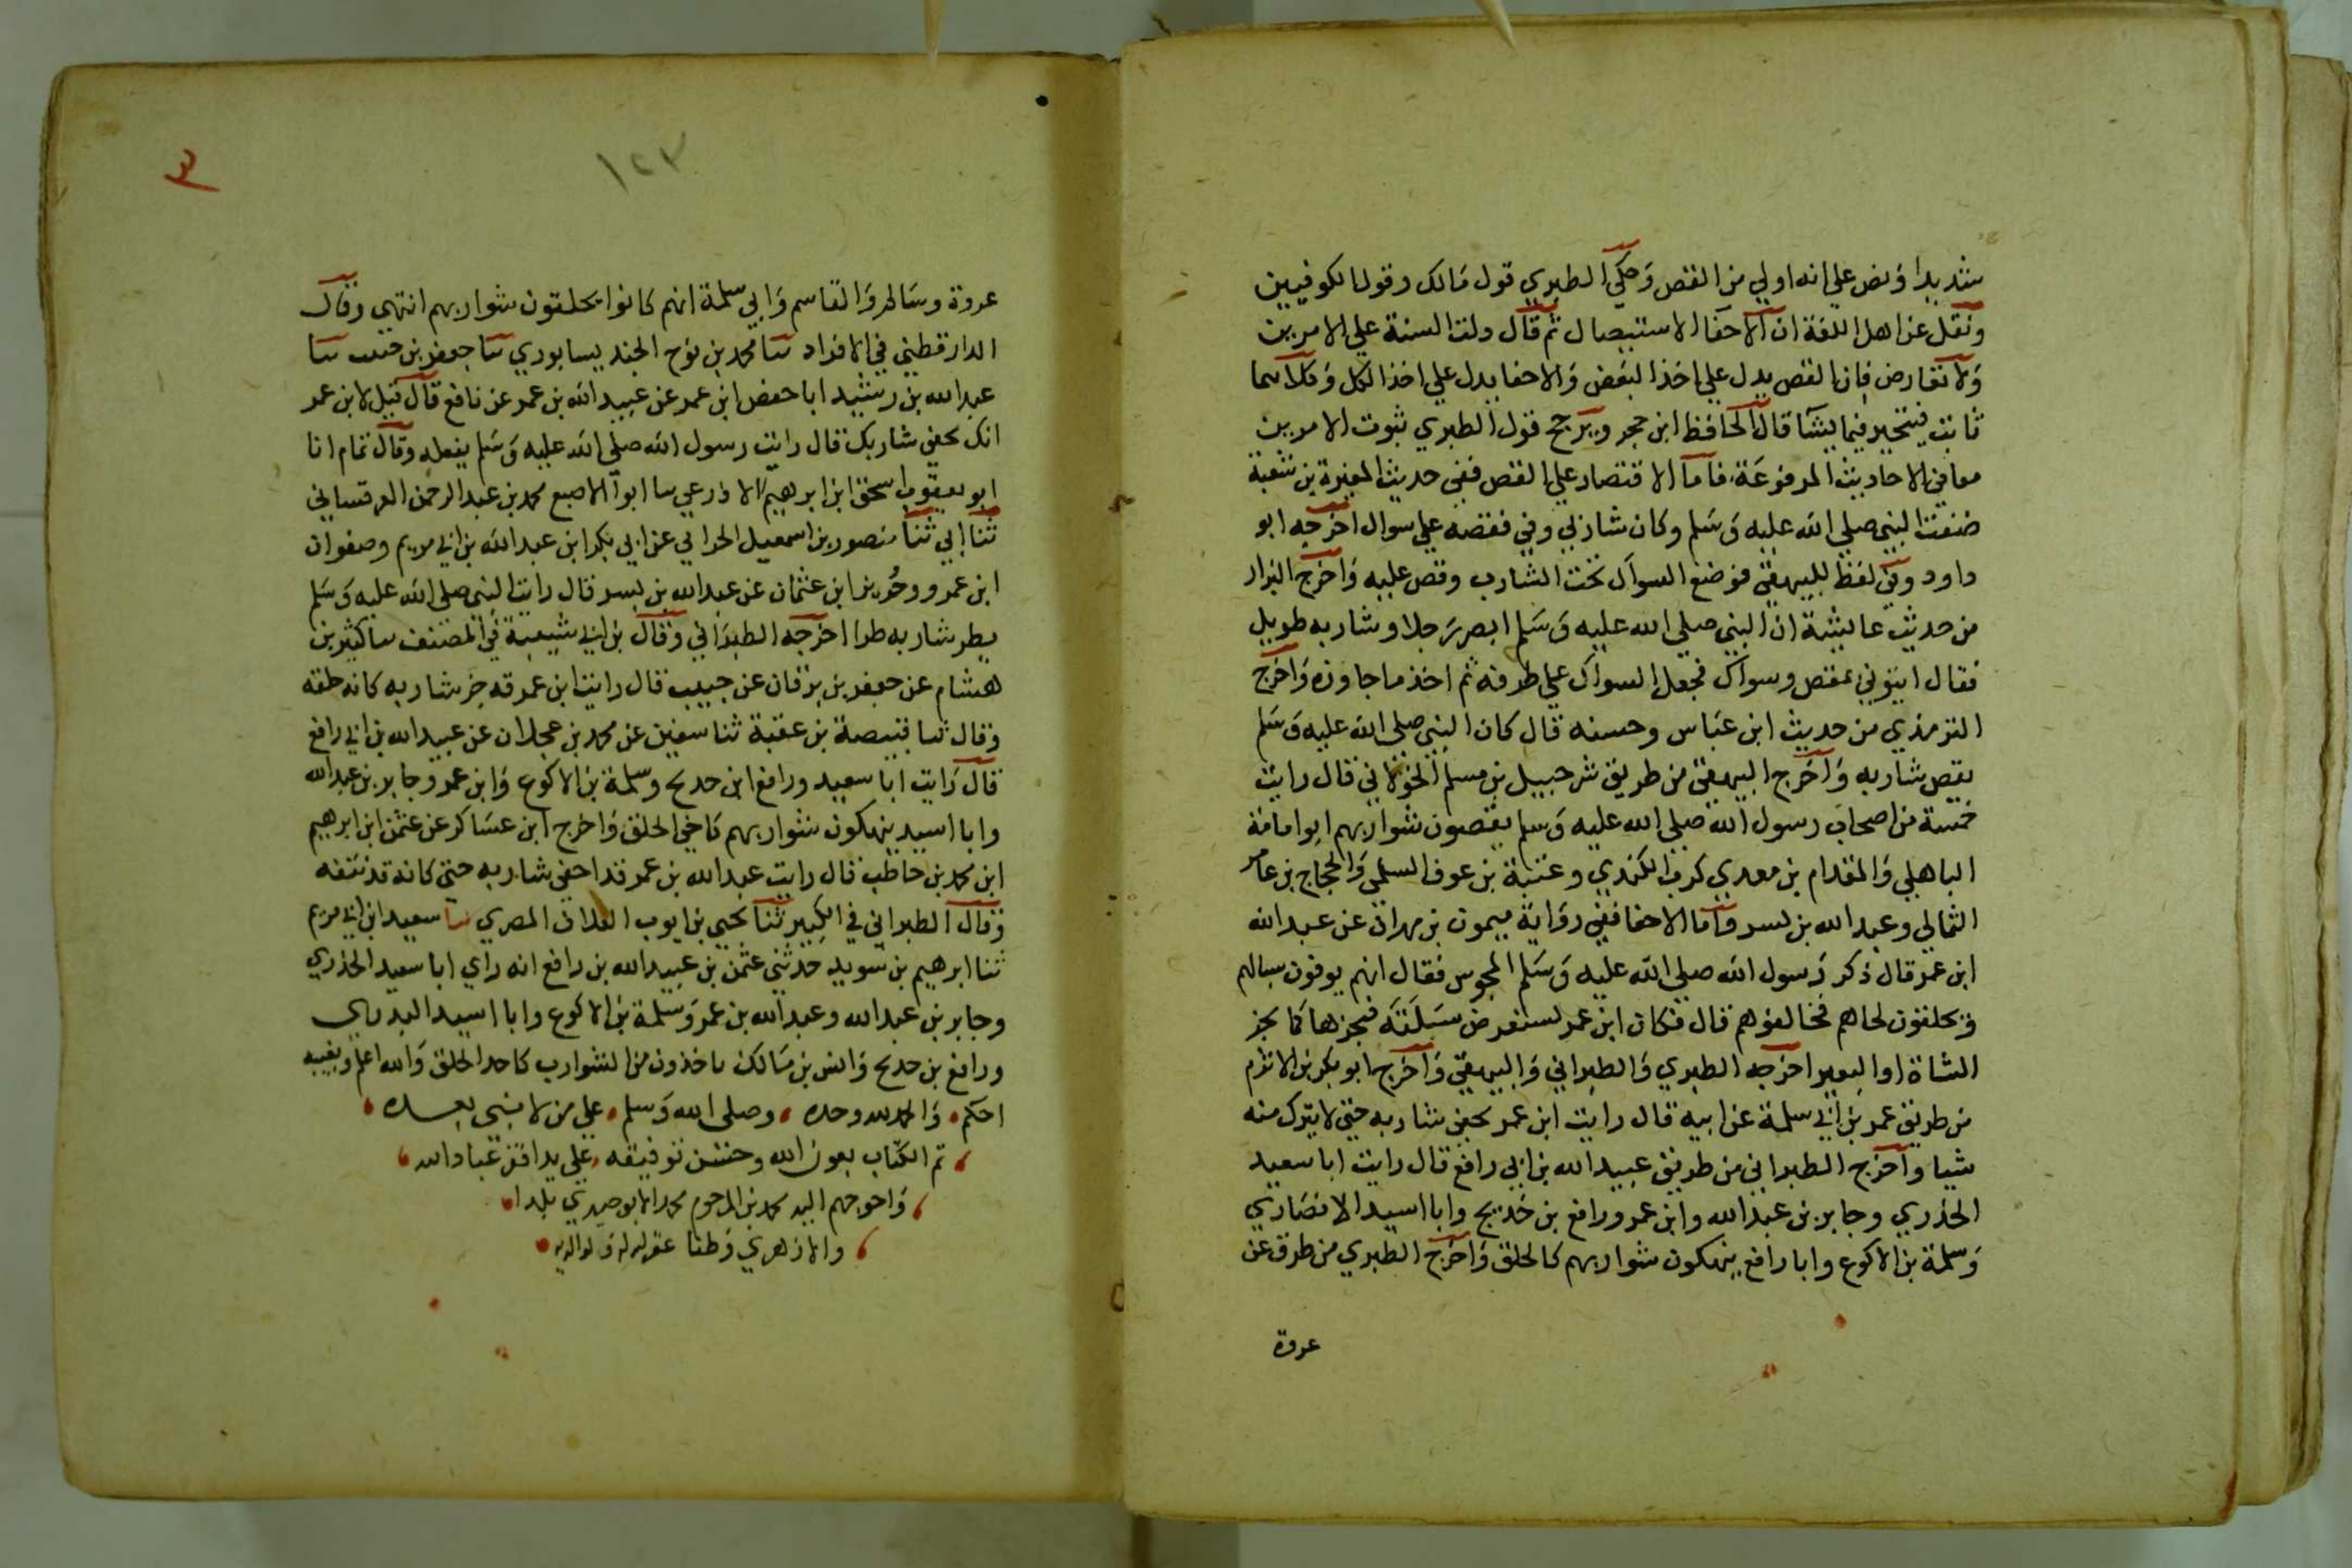 شديدا ونص علي انه اولي من القص وحكي الطبري قول مالك وقول الكوفيين
ونقل عن اهل اللغة ان الاحفا الاستيصال ثم قال دلت السنة علي الامرين
ولا تعارض فان القص يدل علي اخذ البعض والاحفا يدل علي اخذ الكل وكلاهما
ثابت فيتخير فيما يشا قال الحافظ ابن حجر ويرجح قول الطبري ثبوت الامرين
معا في الاحاديث المرفوعة فاما الاقتصار علي القص ففي حديث المغيرة بن شعبة
ضفت النبي صلي الله عليه وسلم وكان شاربي وفي فقصه علي سواك اخرجه ابو
داود وفي لفظ للبيهقي فوضع السواك تحت الشارب وقص عليه واخرج البزار
من حديث عايشة ان النبي صلي الله عليه وسلم ابصر رجلا وشاربه طويل
فقال ايتوني بمقص وسواك فجعل السواك علي طرفه ثم اخذ ما جاوزه واخرج
الترمذي من حديث ابن عباس وحسنه قال كان النبي صلي الله عليه وسلم
يقص شاربه واخرج البيهقي من طريق شرحبيل بن مسلم الخولاني قال رايت
خمسة من اصحاب رسول الله صلي الله عليه وسلم يقصون شواربهم ابو امامة
الباهلي والمقدام بن معدي كرب الكندي وعتبة بن عوف السلمي والحجاج بن عامر
الثمالي وعبد الله بن بسر واما الاحفا ففي رواية ميمون بن مهران عن عبد الله
ابن عمر قال ذكر رسول الله صلي الله عليه وسلم المجوس فقال انهم يوفون سبالهم
ويحلقون لحاهم فخالفوهم قال فكان ابن عمر يستعرض سبلته فيجزها كما يجز
الشاة او البعير اخرجه الطبري والطبراني والبيهقي واخرج ابو بكر بن الاثرم
من طريق عمر بن ابي سلمة عن ابيه قال رايت ابن عمر يحفي شاربه حتي لا يترك منه
شيا واخرج الطبراني من طريق عبيد الله بن ابي رافع قال رايت ابا سعيد
الخدري وجابر بن عبد الله وابن عمر ورافع بن خديج وابا اسيد الانصاري
وسلمة بن الاكوع وابا رافع ينهكون شواربهم كالحلق واخرج الطبري من طرق عن
عروة
٣
١٢٣
عروة وسالم والقاسم وابي سلمة انهم كانوا يحلقون شواربهم انتهي وقال
الدارقطني في الافراد ثنا محمد بن نوح الجنديسابوري ثنا جعفر بن حبيب ثنا
عبد الله بن رشيد ابا حفص ابن عمر عن عبيد الله بن عمر عن نافع قال قيل لابن عمر
انك تحفي شاربك قال رايت رسول الله صلي الله عليه وسلم يفعله وقال تمام انا
ابو يعقوب اسحق ابن ابرهيم الاذرعي ثنا ابو الاصبع محمد بن عبد الرحمن القرقساني
ثنا ابي ثنا منصور بن اسمعيل الحراني عن ابي بكر ابن عبد الله بن ابي مريم وصفوان
ابن عمرو وحُريز ابن عثمان عن عبد الله بن بسر قال رايت النبي صلي الله عليه وسلم
يطر شاربه طرا اخرجه الطبراني وقال بن ابي شيبة في المصنف ثنا كثير بن
هشام عن جعفر بن برقان عن حبيب قال رايت ابن عمر قد جز شاربه كانه حلقه
وقال ثنا قبيصة بن عقبة ثنا سفين عن محمد بن عجلان عن عبيد الله بن ابي رافع
قال رايت ابا سعيد ورافع ابن خديج وسلمة بن الاكوع وابن عمر وجابر بن عبد الله
وابا اسيد ينهكون شواربهم كاخي الحلق واخرج ابن عساكر عن عثمن ابن ابرهيم
ابن محمد بن حاطب قال رايت عبد الله بن عمر قد احفي شاربه حتي كانه قد نتفه
وقال الطبراني في الكبير ثنا يحيي بن ايوب العلاف المصري ثنا سعيد ابن ابي مريم
ثنا ابرهيم بن سويد حدثني عثمن بن عبيد الله بن رافع انه راي ابا سعيد الخدري
وجابر بن عبد الله وعبد الله بن عمر وسلمة بن الاكوع وابا اسيد البدري
ورافع بن خديج وانس بن مالك ياخذون من الشوارب كاحد الحلق والله اعلم وبغيبه
احكم والحمد لله وحده وصلي الله وسلم علي من لا نبي بعده
تم الكتاب بعون الله وحسن توفيقه علي يد افقر عباد الله
واحوجهم اليه محمد بن المرحوم محمد الابوصيري بلدا
والازهري وطنا غفر له ولوالديه